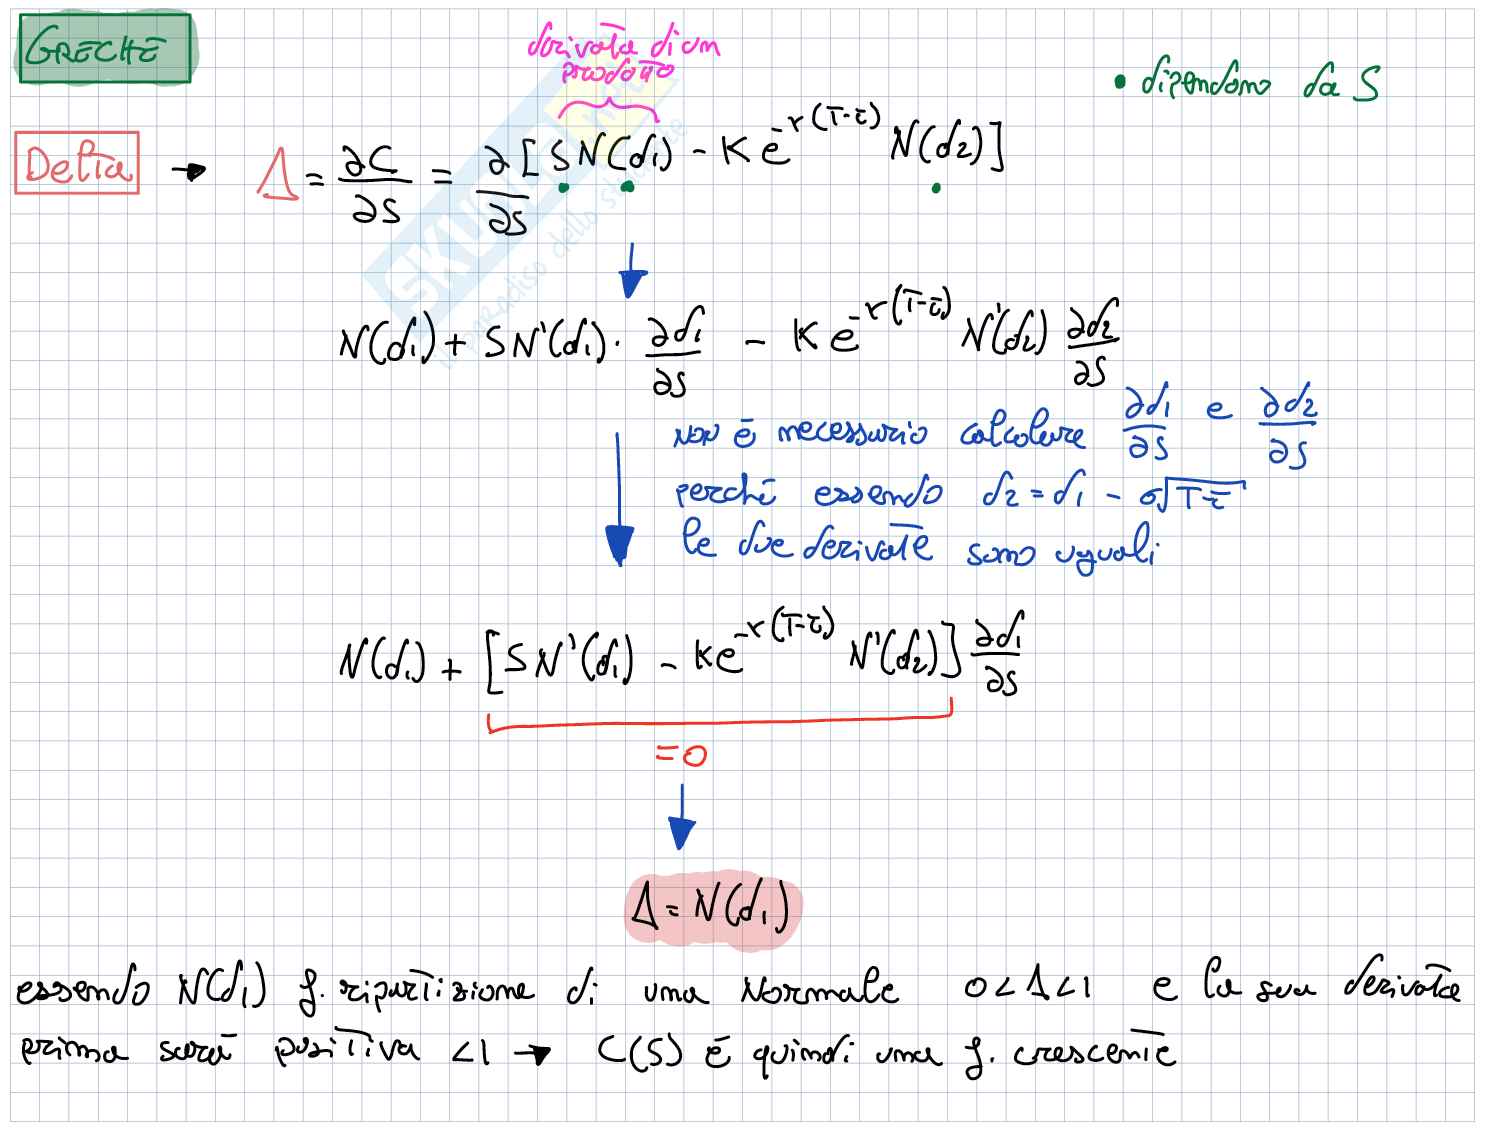 GRECHE
derivata di un
prodotto
• dipendono da S
Delta → Δ = ∂C/∂S = ∂/∂S [S N(d1) - K e^-r(T-τ) N(d2)]
N(d1) + S N'(d1) · ∂d1/∂S - K e^-r(T-τ) N'(d2) ∂d2/∂S
NON è necessario calcolare ∂d1/∂S e ∂d2/∂S
perché essendo d2 = d1 - σ√T-τ
le due derivate sono uguali
N(d1) + [S N'(d1) - K e^-r(T-τ) N'(d2)] ∂d1/∂S
= 0
Δ = N(d1)
essendo N(d1) f. ripartizione di una Normale 0<Δ<1 e la sua derivata
prima sarà positiva <1 → C(S) è quindi una f. crescente
SKUOLA.net
il paradiso dello studente